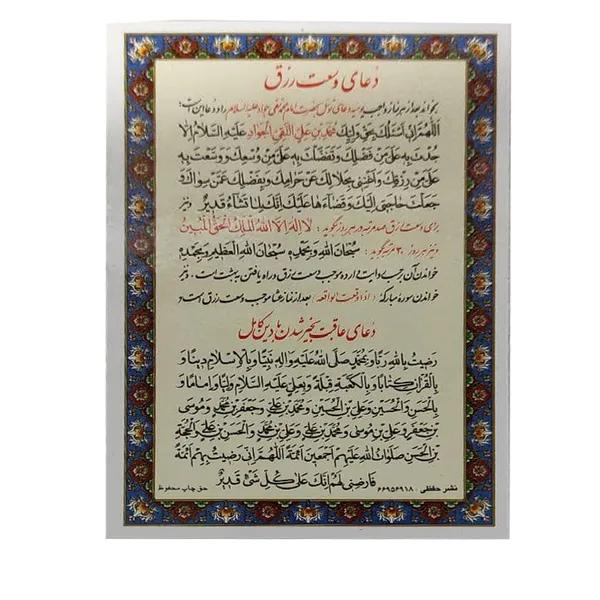 دعای وسعت رزق
بخواند بعد از هر نماز واجب و به دعای توسل بحضرت امام محمد تقی جواد علیه السلام را و دعا این است:
اَللّهُمَّ اِنّی اَسْئَلُکَ بِحَقِّ وَلِیِّکَ مُحَمَّدِ بْنِ عَلِیٍّ التَّقِیِّ الْجَوادِ عَلَیْهِ السَّلامُ اِلّا
جُدْتَ بِهِ عَلَیَّ مِنْ فَضْلِکَ وَ تَفَضَّلْتَ بِهِ عَلَیَّ مِنْ وُسْعِکَ وَ وَسَّعْتَ بِهِ
عَلَیَّ مِنْ رِزْقِکَ وَ اَغْنِنی بِحَلالِکَ عَنْ حَرامِکَ وَ بِفَضْلِکَ عَمَّنْ سِواکَ وَ
جَعَلْتَ حاجَتی اِلَیْکَ وَ قَضاءَها عَلَیْکَ اِنَّکَ لِما تَشاءُ قَدیرٌ و نیز
برای وسعت رزق صد مرتبه در هر روز بگوید: لا اِلهَ اِلَّا اللهُ الْمَلِکُ الْحَقُّ الْمُبینُ
و نیز هر روز ۳۰ مرتبه بگوید: سُبْحانَ اللهِ وَ بِحَمْدِهِ سُبْحانَ اللهِ الْعَظیمِ وَ بِحَمْدِهِ
خواندن آن بر حسب روایت وارده موجب وسعت رزق و راه یافتن به بهشت است. و نیز
خواندن سوره مبارکه (اذا وقعت الواقعه) بعد از نماز عشا موجب وسعت رزق است و
دعای عاقبت بخیر شدن با دین کامل
رَضیتُ بِاللهِ رَبًّا وَ بِمُحَمَّدٍ صَلَّی اللهُ عَلَیْهِ وَ الِهِ نَبِیًّا وَ بِالْاِسْلامِ دینًا وَ
بِالْقُرْآنِ کِتابًا وَ بِالْکَعْبَةِ قِبْلَةً وَ بِعَلِیٍّ عَلَیْهِ السَّلامُ وَلِیًّا وَ اِمامًا وَ
بِالْحَسَنِ وَ الْحُسَیْنِ وَ عَلِیِّ بْنِ الْحُسَیْنِ وَ مُحَمَّدِ بْنِ عَلِیٍّ وَ جَعْفَرِ بْنِ مُحَمَّدٍ وَ مُوسَی
بْنِ جَعْفَرٍ وَ عَلِیِّ بْنِ مُوسی وَ مُحَمَّدِ بْنِ عَلِیٍّ وَ عَلِیِّ بْنِ مُحَمَّدٍ وَ الْحَسَنِ بْنِ عَلِیٍّ وَ الْحُجَّةِ
بْنِ الْحَسَنِ صَلَواتُ اللهِ عَلَیْهِمْ اَجْمَعینَ اَئِمَّةً اَللّهُمَّ اِنّی رَضیتُ بِهِمْ اَئِمَّةً
فَارْضِنی لَهُمْ اِنَّکَ عَلی کُلِّ شَیْءٍ قَدیرٌ
نشر حفظی: ۶۶۹۵۶۹۱۸
حق چاپ محفوظ